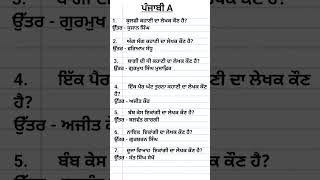 ਪੰਜਾਬੀ A
1. ਕੁਲਫ਼ੀ ਕਹਾਣੀ ਦਾ ਲੇਖਕ ਕੌਣ ਹੈ?
ਉੱਤਰ - ਸੁਜਾਨ ਸਿੰਘ
2. ਅੰਗ ਸੰਗ ਕਹਾਣੀ ਦਾ ਲੇਖਕ ਕੌਣ ਹੈ?
ਉੱਤਰ - ਵਰਿਆਮ ਸੰਧੂ
3. ਬਾਗੀ ਦੀ ਧੀ ਕਹਾਣੀ ਦਾ ਲੇਖਕ ਕੌਣ ਹੈ?
ਉੱਤਰ - ਗੁਰਮੁਖ ਸਿੰਘ ਮੁਸਾਫ਼ਿਰ
4. ਇੱਕ ਪੈਰ ਘੱਟ ਤੁਰਨਾ ਕਹਾਣੀ ਦਾ ਲੇਖਕ ਕੌਣ ਹੈ?
ਉੱਤਰ - ਅਜੀਤ ਕੌਰ
5. ਬੰਬ ਕੇਸ ਇਕਾਂਗੀ ਦਾ ਲੇਖਕ ਕੌਣ ਹੈ?
ਉੱਤਰ - ਬਲਵੰਤ ਗਾਰਗੀ
6. ਨਾਇਕ ਇਕਾਂਗੀ ਦਾ ਲੇਖਕ ਕੌਣ ਹੈ?
ਉੱਤਰ - ਗੁਰਚਰਨ ਸਿੰਘ
7. ਦੂਜਾ ਵਿਆਹ ਇਕਾਂਗੀ ਦਾ ਲੇਖਕ ਕੌਣ ਹੈ?
ਉੱਤਰ - ਸੰਤ ਸਿੰਘ ਸੇਖੋਂ